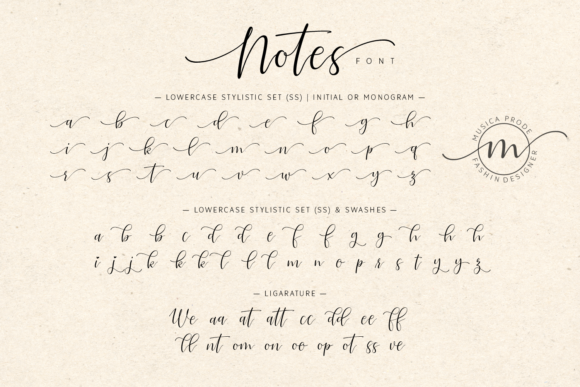 Notes FONT
— LOWERCASE STYLISTIC SET (SS) | INITIAL OR MONOGRAM —
a b c d e f g h
i j k l m n o p q
r s t u v w x y z
MUSICA PRODE
m
FASHIN DESIGNER
— LOWERCASE STYLISTIC SET (SS) & SWASHES —
a b b c d d e f f g g h h h
i j j k k k l l m n o p r s s t y y z
— LIGARATURE —
We aa at att cc dd ee ff
ll nt om on oo op ot ss ve